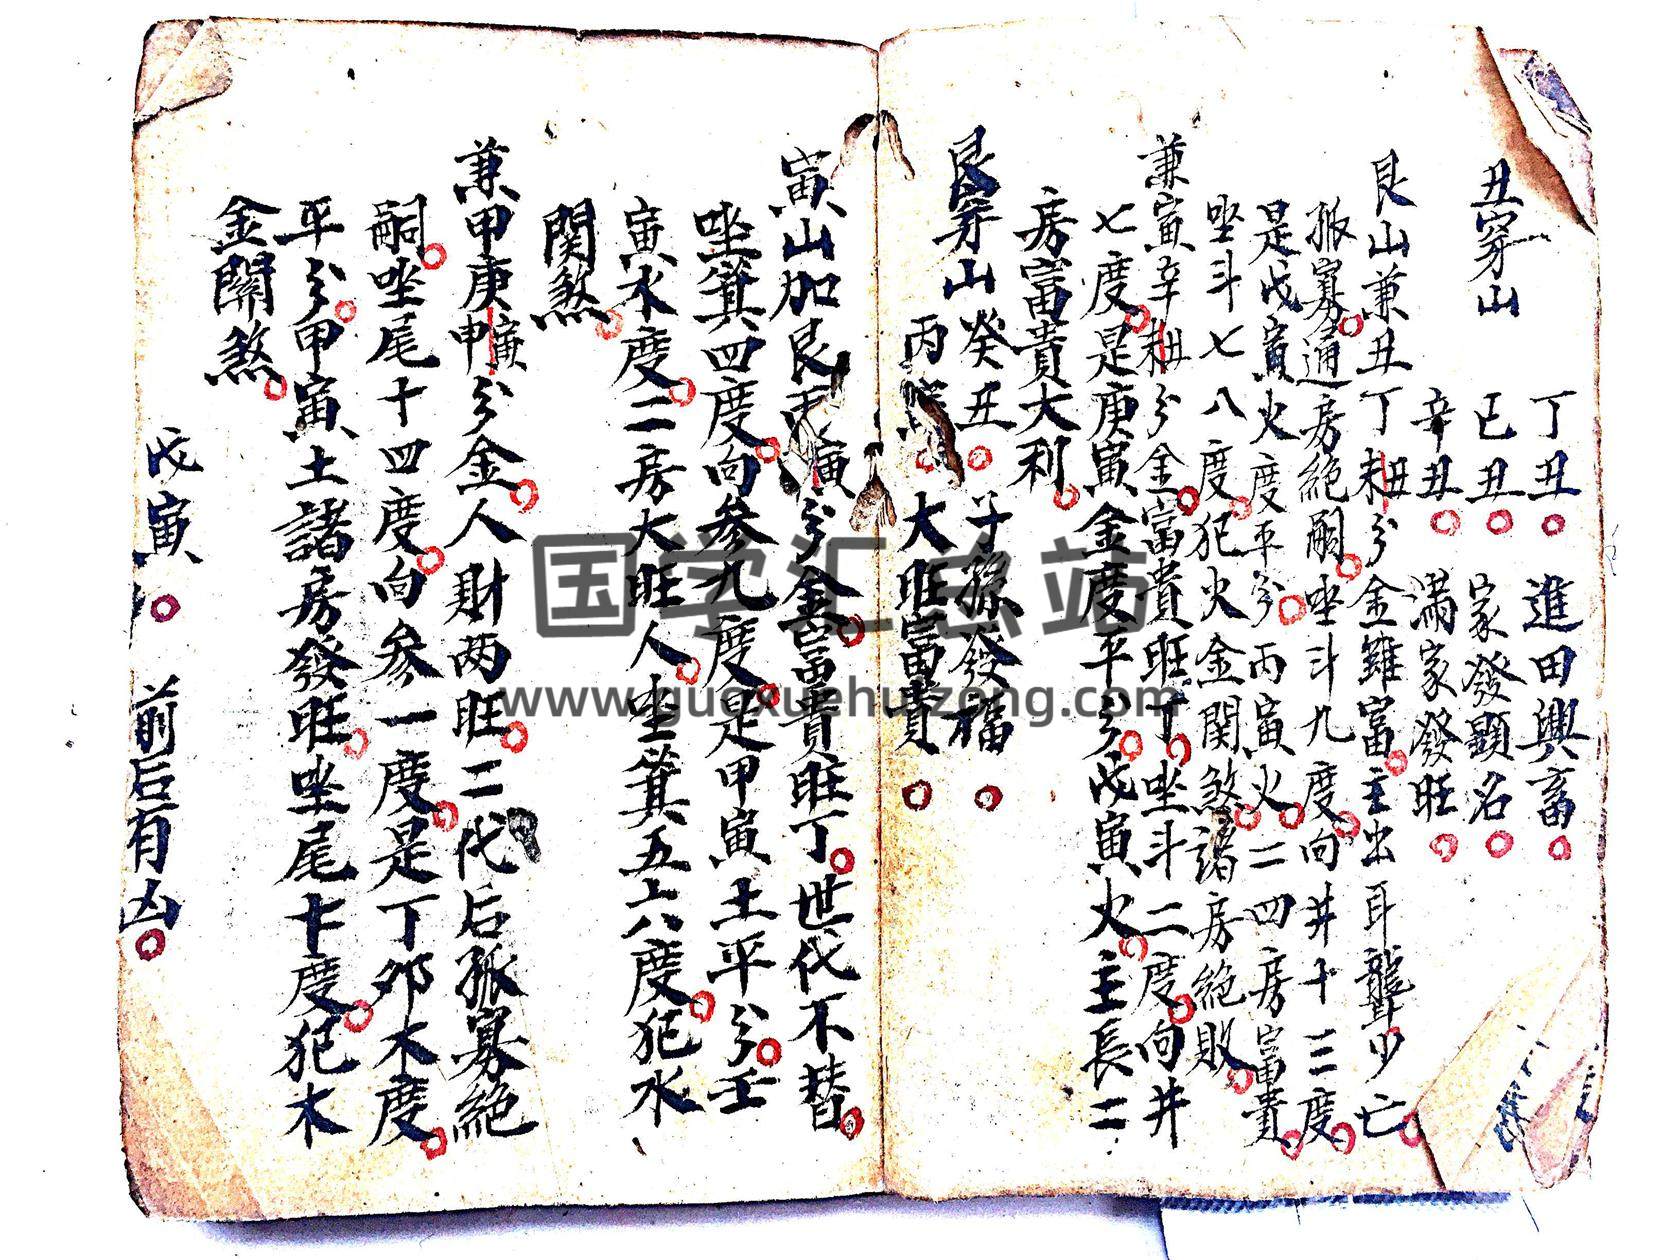 丁丑 進田興畜
丑穿山 己丑 家發顯名
辛丑 滿家發旺
艮山兼丑丁 丑分金雖富主出耳聾少亡
孤寡通房絕嗣坐斗九度向井十三度
是戊寅火度平分丙寅火二四房富貴
坐斗七八度犯火金関煞諸房絕敗
兼寅 辛丑分金富貴旺丁坐斗二度向井
七度是庚寅金度平分戊寅火主長二
房富貴大利
艮穿山 癸丑 子孫發福
丙 大旺富貴
寅山加艮 寅分金富貴旺丁世代不替
坐箕四度向参九度是甲寅土平分壬
寅水度二房大旺人坐箕五六八度犯水
関煞
兼甲庚 寅分金人財两旺二代后孤寡絕
嗣坐尾十四度向参一度是丁卯木度
平分甲寅土諸房發旺坐尾十度犯木
金關煞
戊寅 前后有凶
国学汇总站
www.guoxuehuizong.com